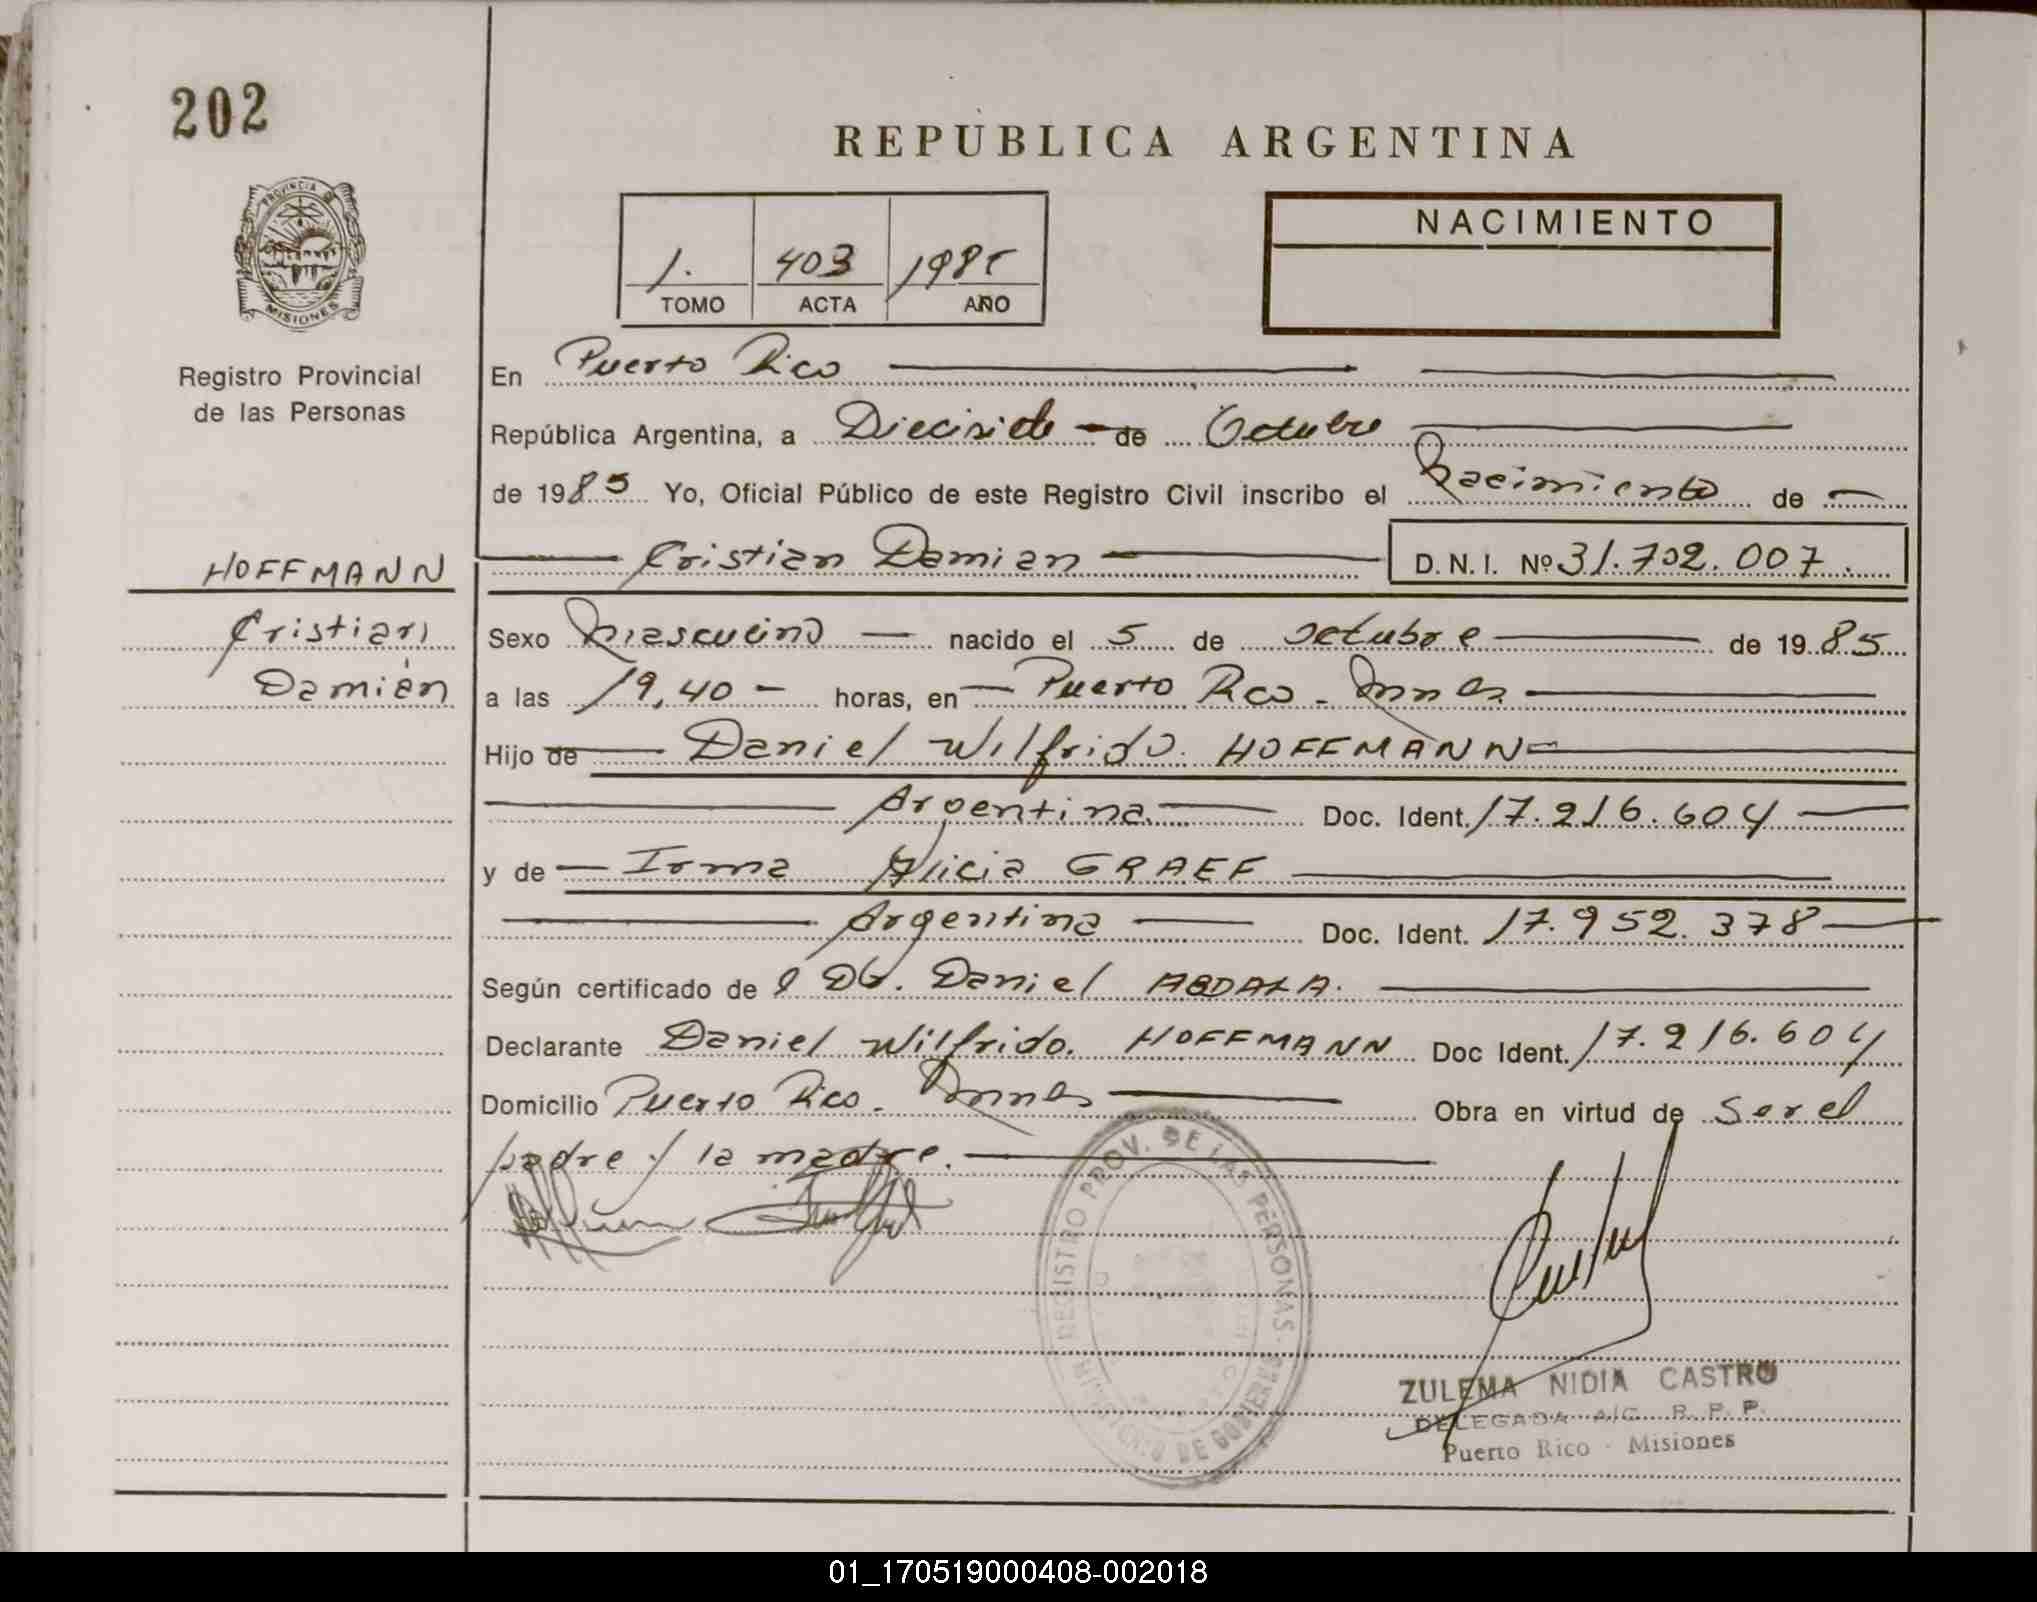 202
REPUBLICA ARGENTINA
PROVINCIA DE MISIONES
1. 403 1985
TOMO ACTA AÑO
NACIMIENTO
Registro Provincial
de las Personas
En Puerto Rico
República Argentina, a Diecisiete de Octubre
de 1985 Yo, Oficial Público de este Registro Civil inscribo el Nacimiento de
Cristian Damian D.N.I. Nº 31.702.007.
HOFFMANN
Cristian
Damián
Sexo Masculino nacido el 5 de octubre de 1985
a las 19,40 horas, en Puerto Rico - Mnes
Hijo de Daniel Wilfrido HOFFMANN
Argentina Doc. Ident. 17.216.604
y de Irma Alicia GRAEF
Argentina Doc. Ident. 17.952.378
Según certificado de l Dr. Daniel ABDALA.
Declarante Daniel Wilfrido HOFFMANN Doc Ident. 17.216.604
Domicilio Puerto Rico - Mnes Obra en virtud de ser el
padre y la madre.
REGISTRO PROV. DE LAS PERSONAS
MINISTERIO DE GOBIERNO
ZULEMA NIDIA CASTRO
DELEGADA A/C R. P. P.
Puerto Rico - Misiones
01_170519000408-002018